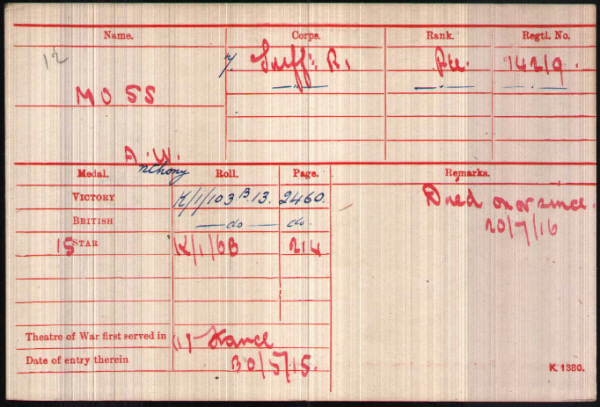 Name. Corps. Rank. Regtl. No.
12 7. Suff: R. Pte. 14219.
MOSS
A.W.
nthony
Medal. Roll. Page. Remarks.
VICTORY K/1/103 B.13. 2460. Died on or since
BRITISH — do — do. 20/7/16
15 STAR K/1/6B 214
Theatre of War first served in (1) France
Date of entry therein 30/5/15.
K 1380.